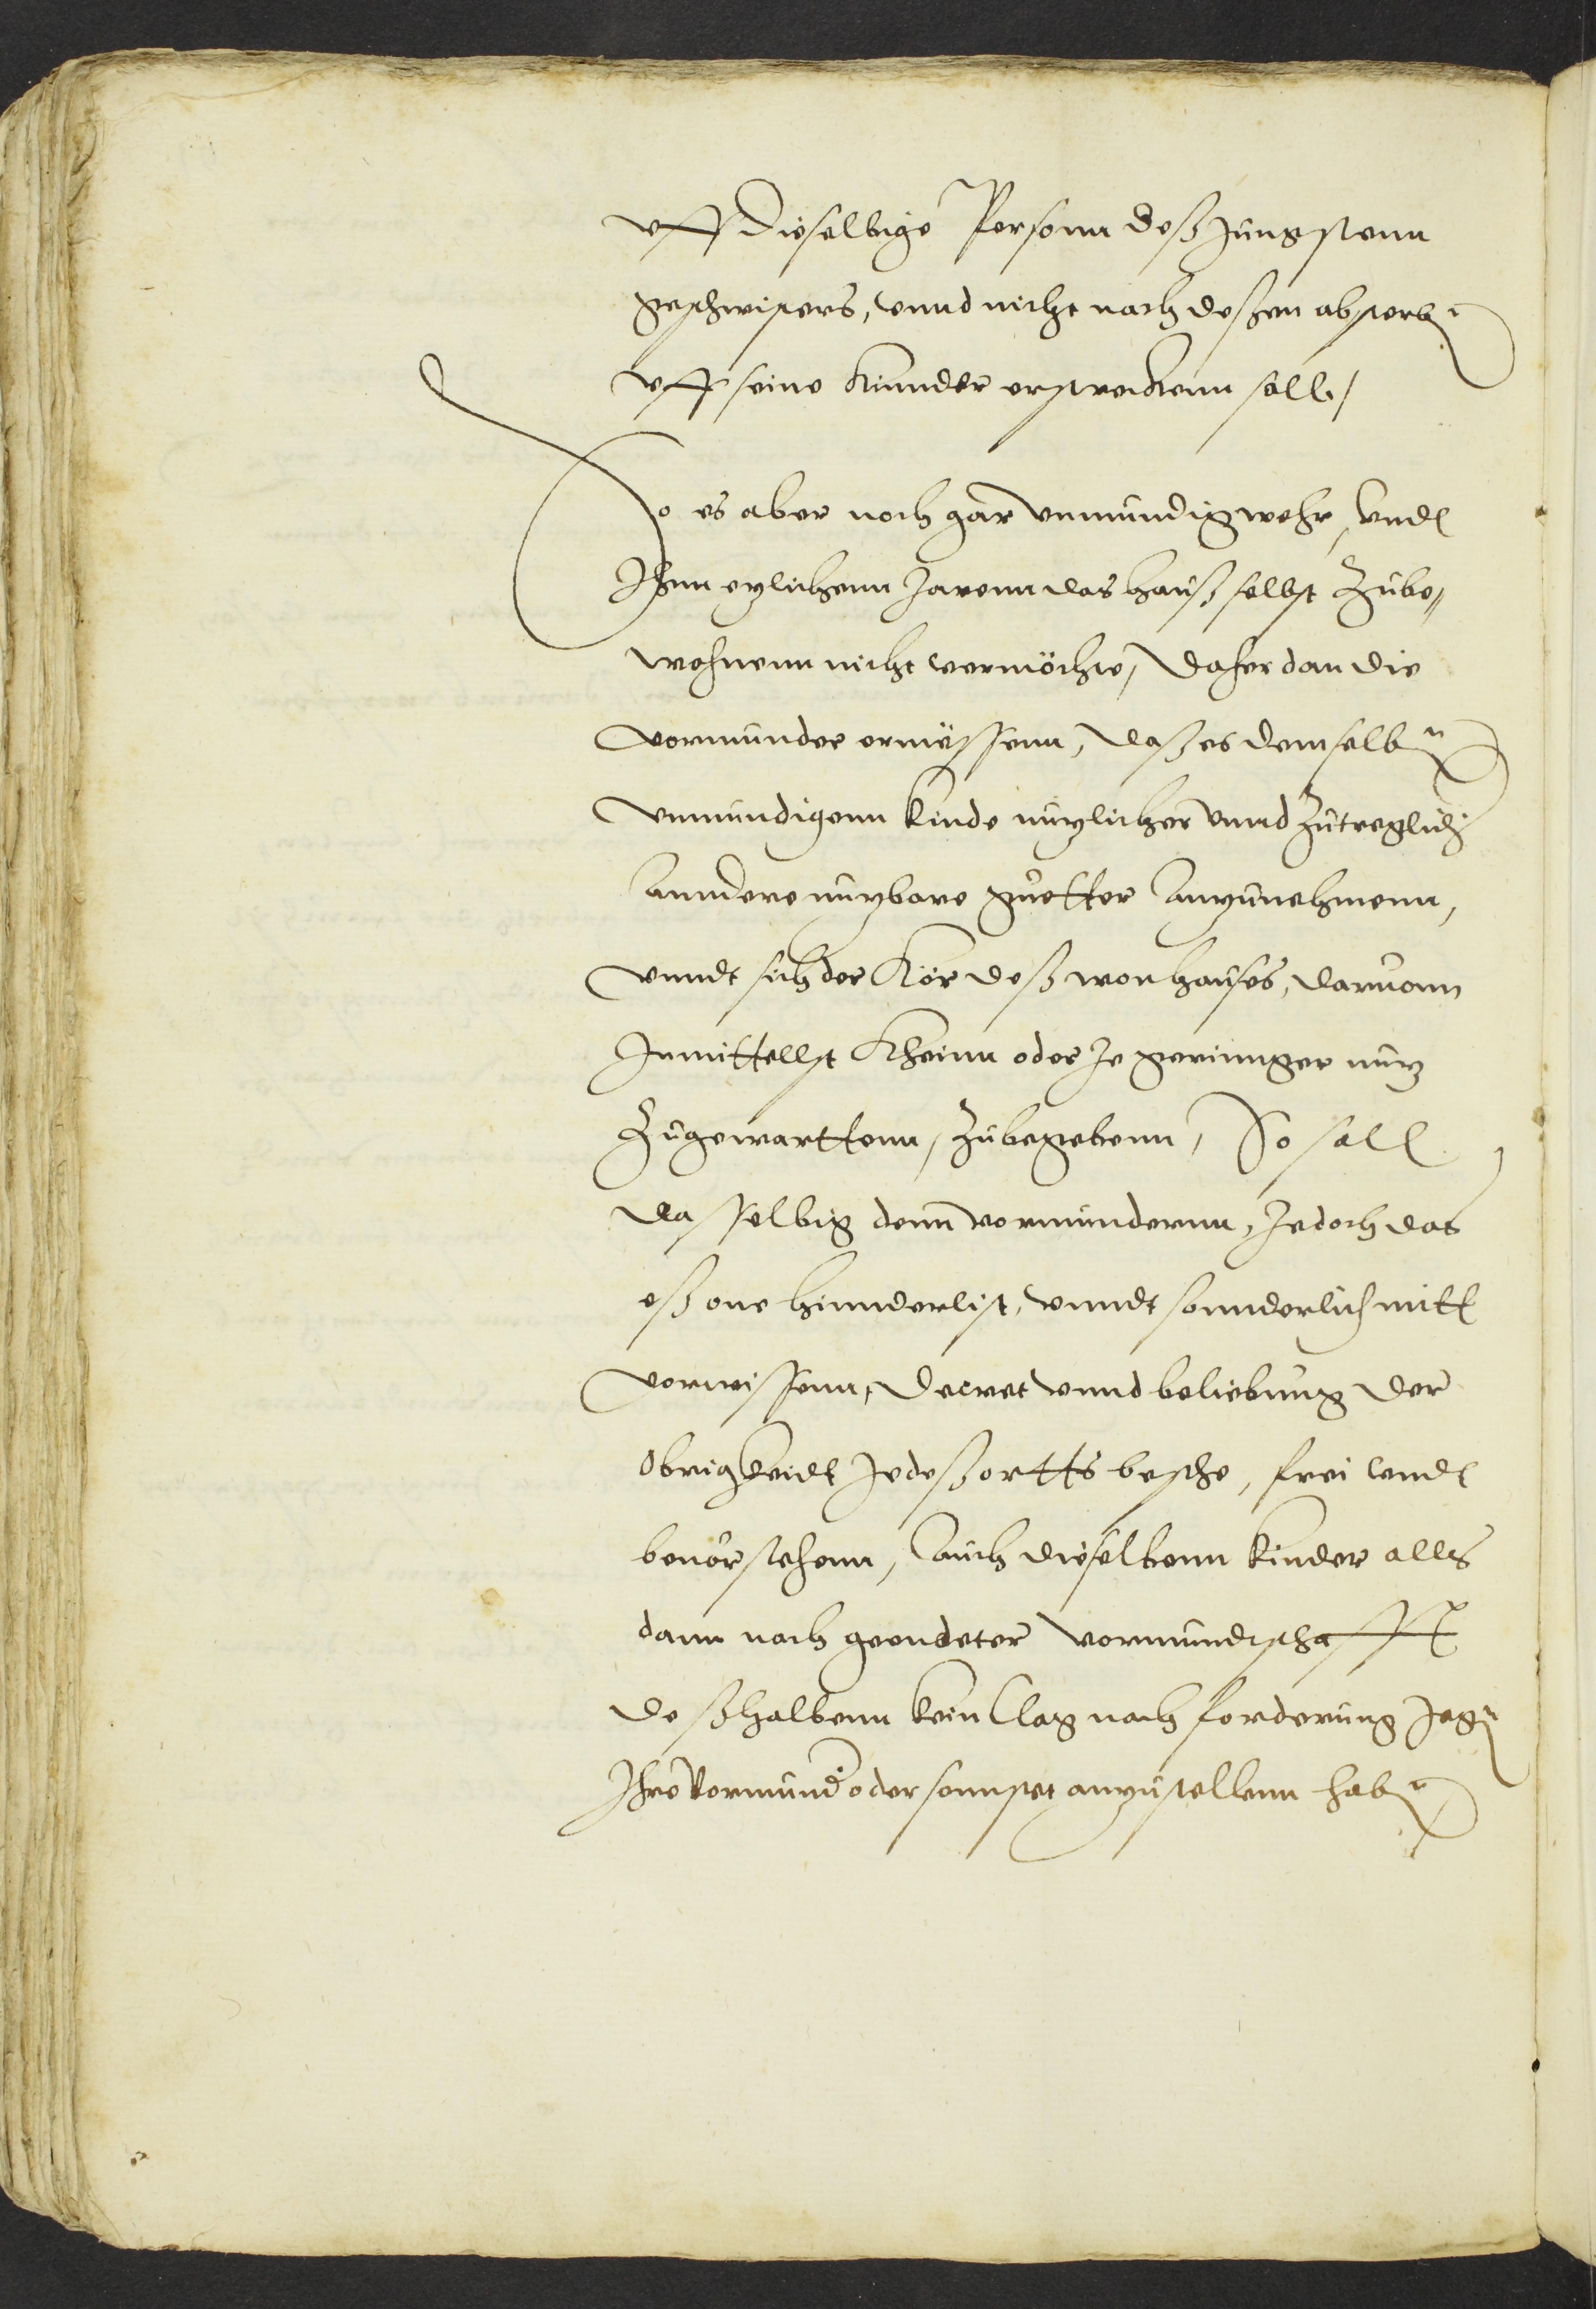 vff dieselbige Personn deß Jungstenn
geschwisters, vnnd nicht nach deßen absterbn
vff seine Kinnder erstreckenn soll,
So es aber noch gar vnmundig wehr, vnd
Ihnn etzlichenn Jarenn das hauß selbst Zube,,
wohnenn nicht vermöchte, daher dan die
vormunder ermessenn, daß es demselbn
vnmundigenn kinde nutzlicher vnnd Zutreglich
anndere nutzbare guetter anzunehmenn,
vnndt sich der Kör deß wonhauses, daruonn
Inmittellst Kheinn oder Je geringer nutz
Zugewarttenn, Zubegebenn, So soll
dasselbig denn vormundernn, Jedoch das
eß one hinnderlist, vnndt sonnderlich mitt
vorwissenn, Decret vnnd beliebung der
Obrigkeidt Jedeß ortts beschehe, frei vnd
beuor stehenn, Auch dieselbenn kinder alls
dann nach geendeter vormundtschafft
deßhalbenn kein Clag noch forderung Jegn
Ihre Vormund oder sonnstet anzustellenn habn